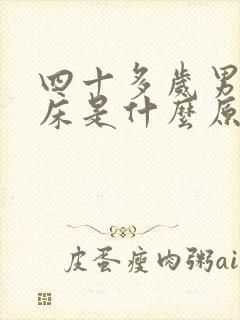 四十多歲男
床是什麼原
皮蛋瘦肉粥ai